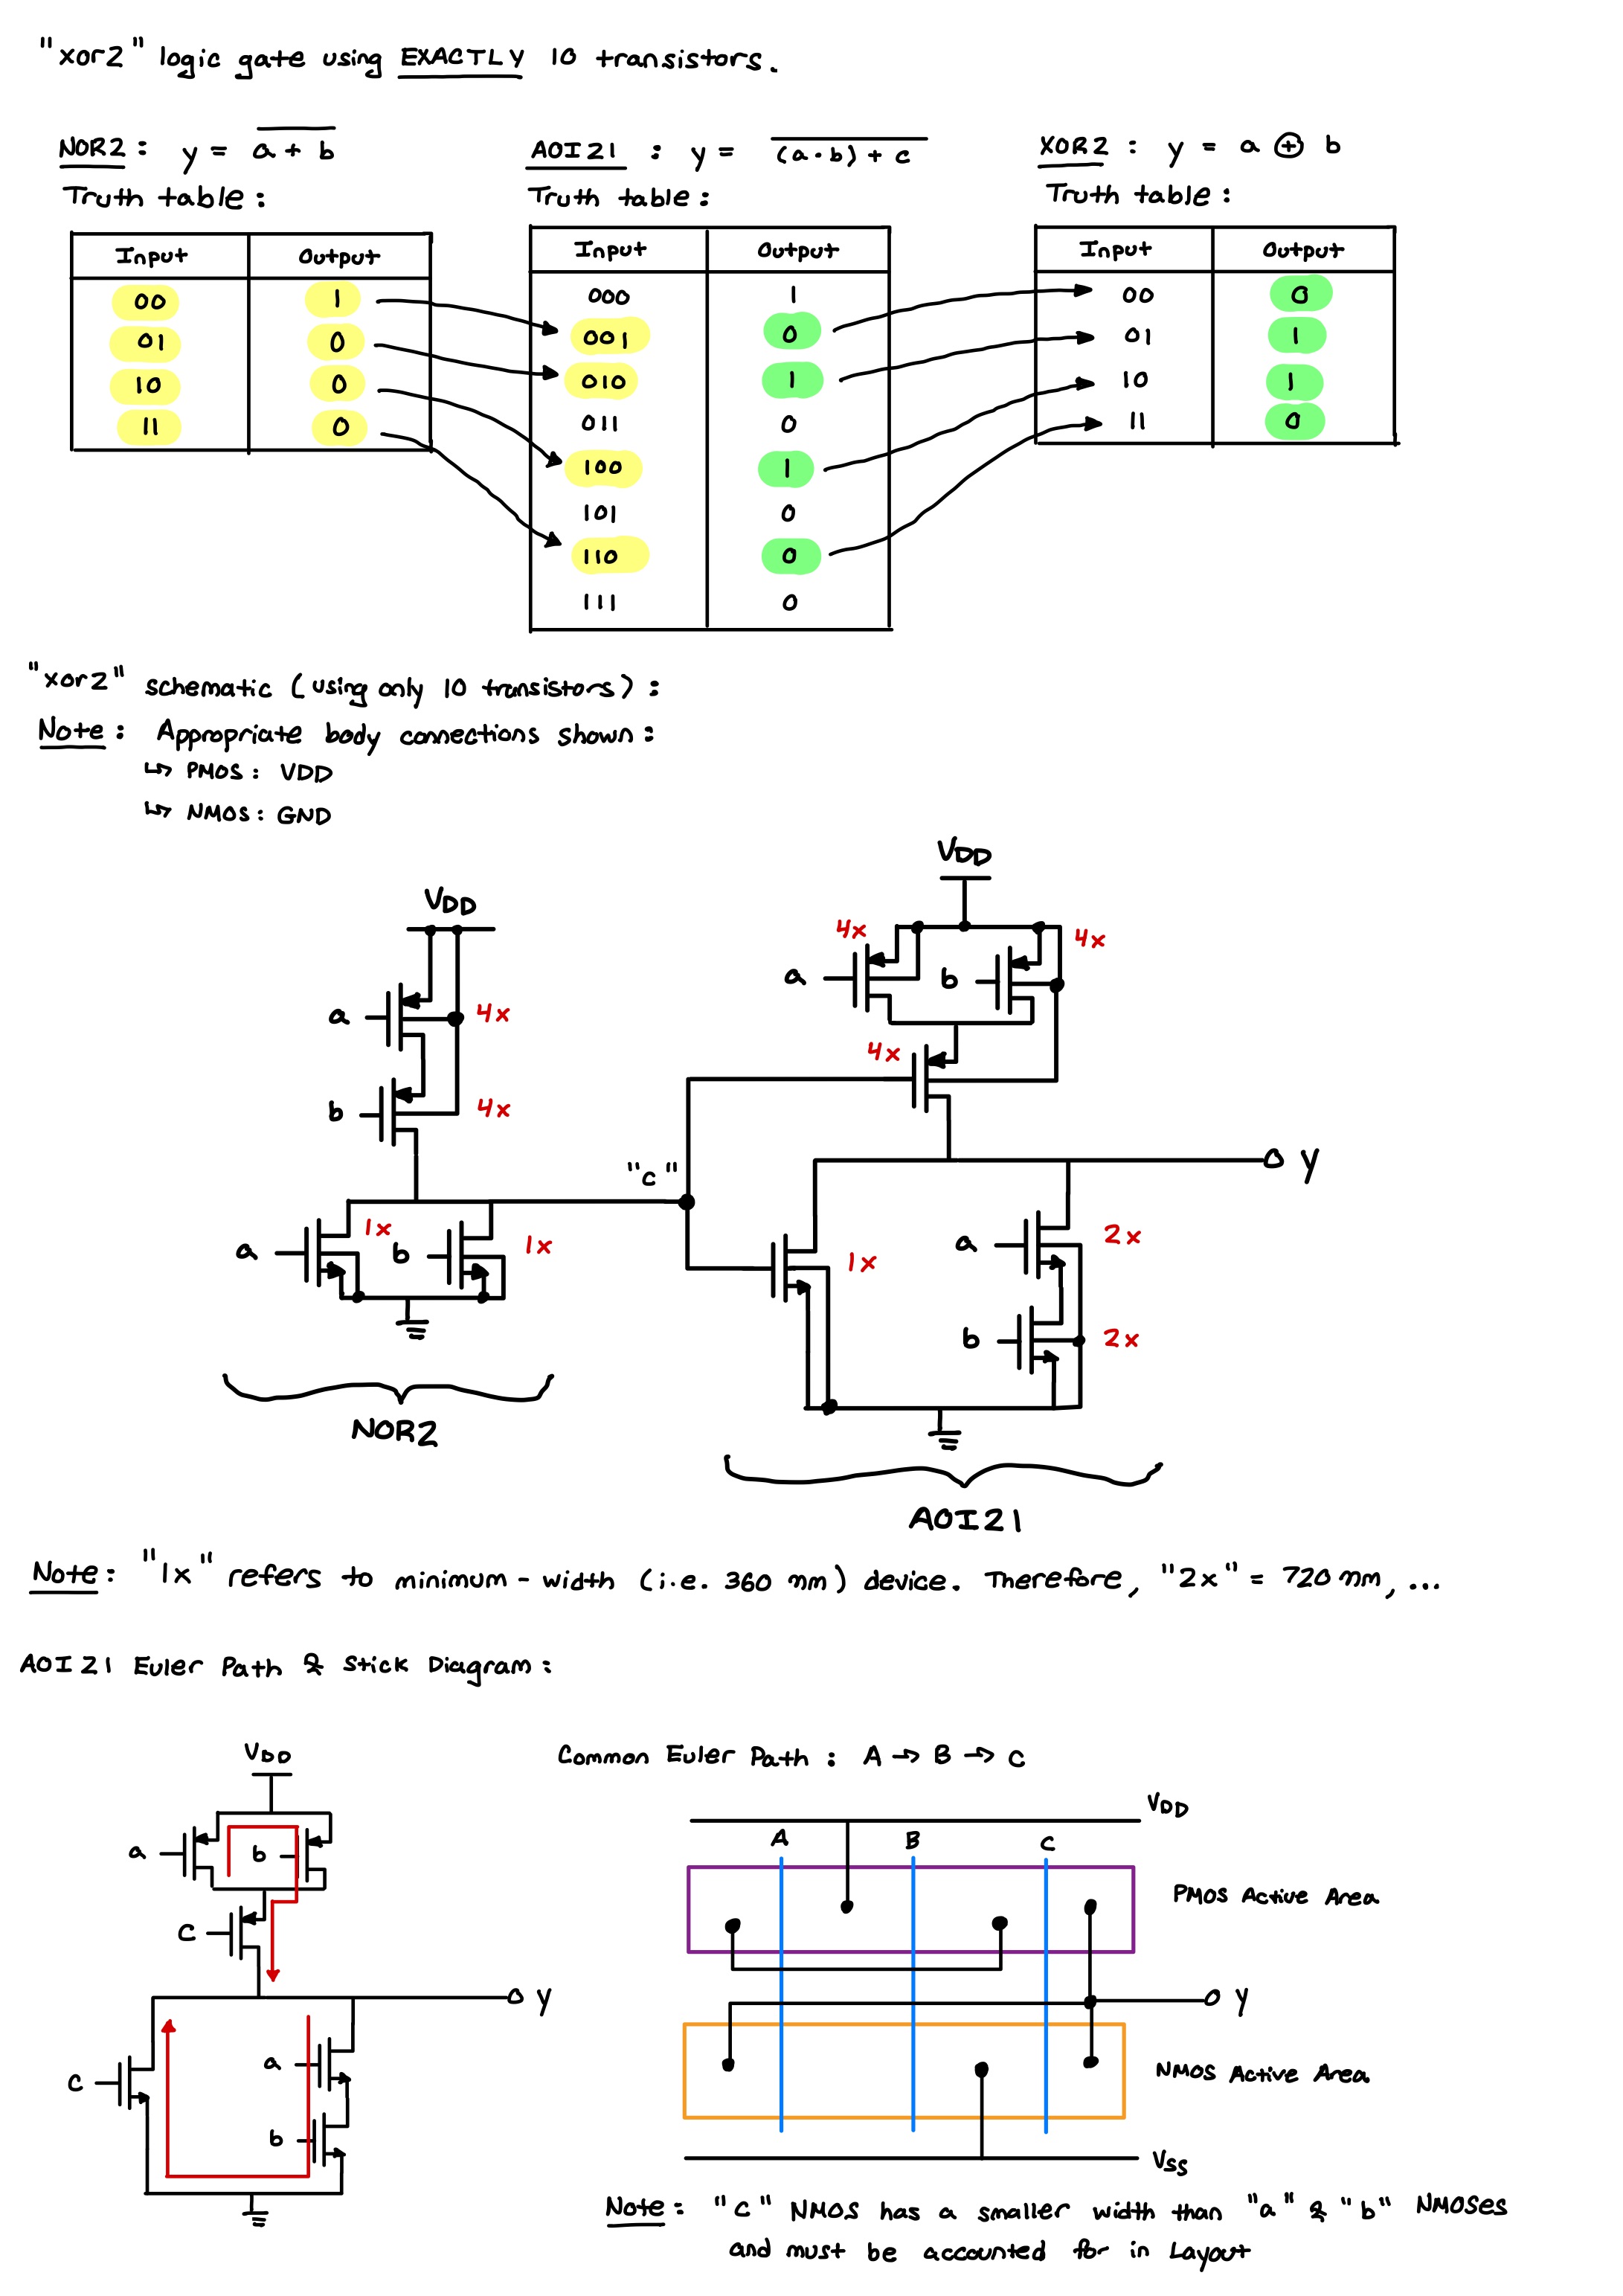 "xor2" logic gate using EXACTLY 10 transistors.
NOR2: y = a + b
Truth table:
Input Output
00 1
01 0
10 0
11 0
AOI21 : y = (a·b) + c
Truth table:
Input Output
000 1
001 0
010 1
011 0
100 1
101 0
110 0
111 0
XOR2 : y = a ⊕ b
Truth table:
Input Output
00 0
01 1
10 1
11 0
"xor2" schematic (using only 10 transistors):
Note: Appropriate body connections shown:
↳ PMOS: VDD
↳ NMOS: GND
VDD
a 4x
b 4x
a 1x b 1x
NOR2
"c"
VDD
4x 4x
a b
4x
Y
1x
a 2x
b 2x
AOI21
Note: "1x" refers to minimum-width (i.e. 360 nm) device. Therefore, "2x" = 720 nm, ...
AOI21 Euler Path & Stick Diagram:
VDD
a b
c
Y
a
c
b
Common Euler Path: A → B → C
VDD
A B C
PMOS Active Area
Y
NMOS Active Area
VSS
Note: "c" NMOS has a smaller width than "a" & "b" NMOSes
and must be accounted for in Layout